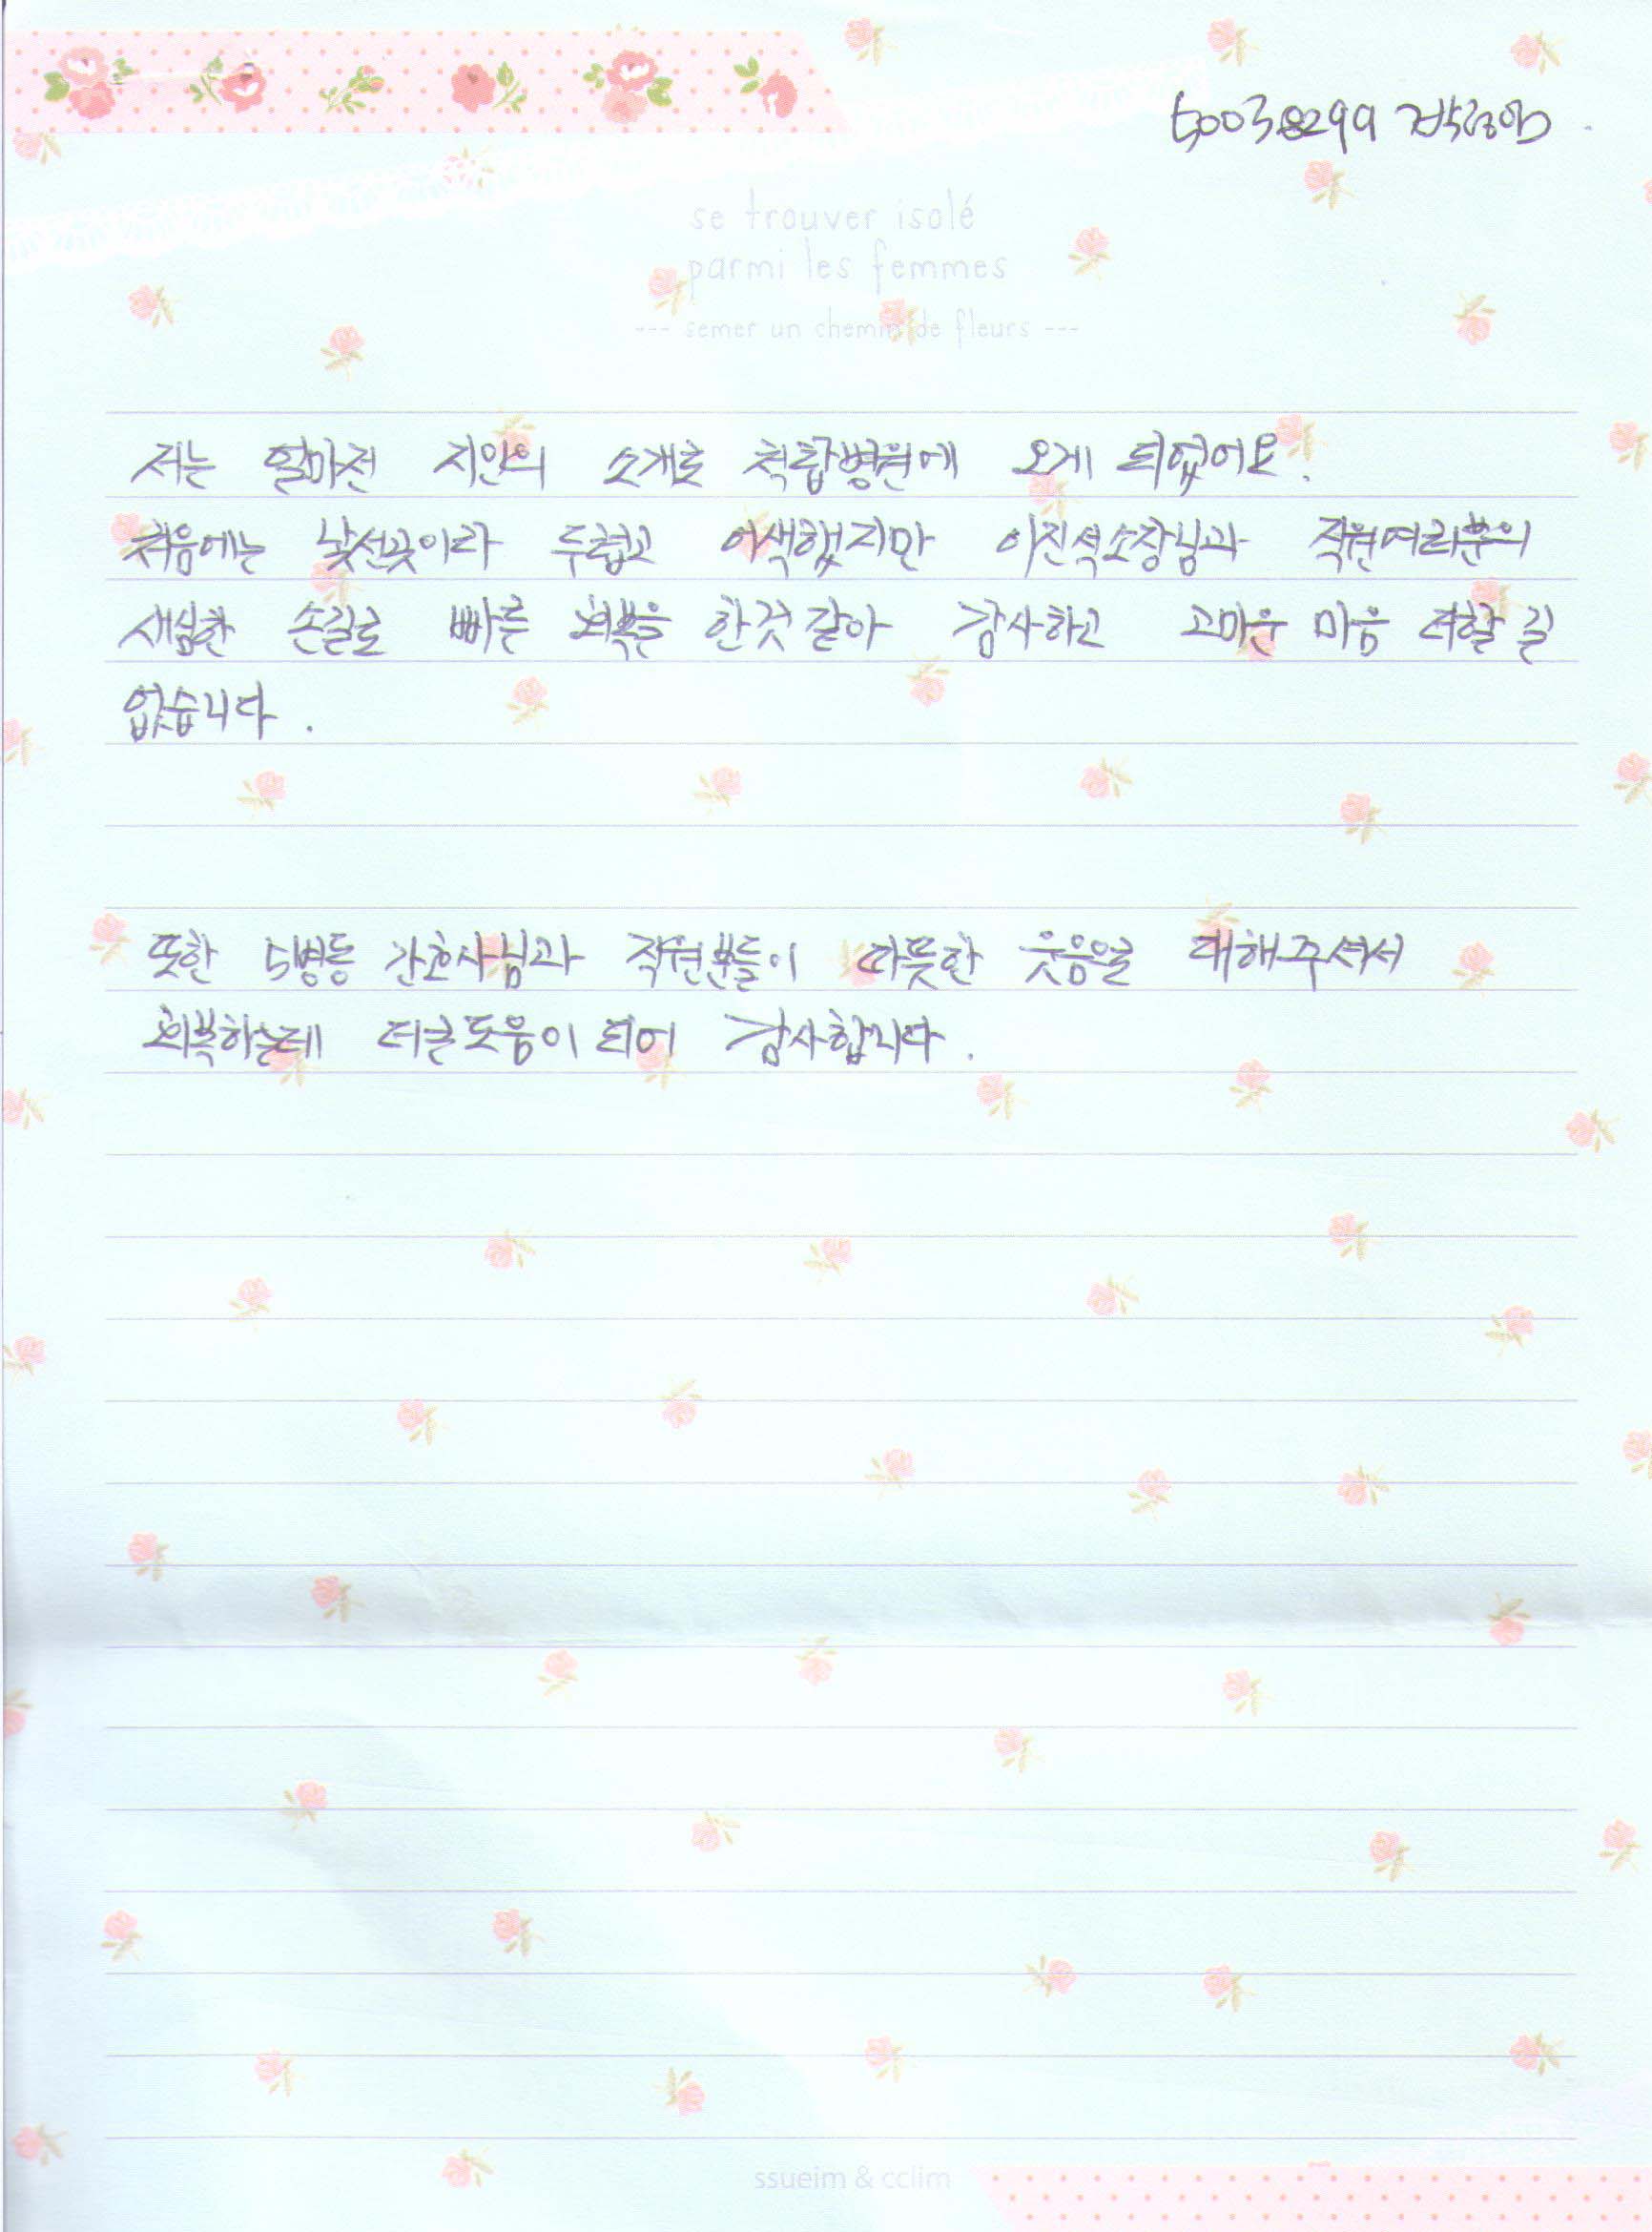 50038299
se trouver isolé
parmi les femmes
--- semer un chemin de fleurs ---
저는 얼마전 지인의 소개로 척탑병원에 오게 되었어요.
처음에는 낯선곳이라 두렵고 어색했지만 이진석소장님과 직원여러분의
세심한 손길로 빠른 회복을 한것 같아 감사하고 고마운 마음 더할 길
없습니다.
또한 5병동 간호사님과 직원분들이 따뜻한 웃음을 대해주셔서
회복하는데 더큰도움이 되어 감사합니다.
ssueim & cclim